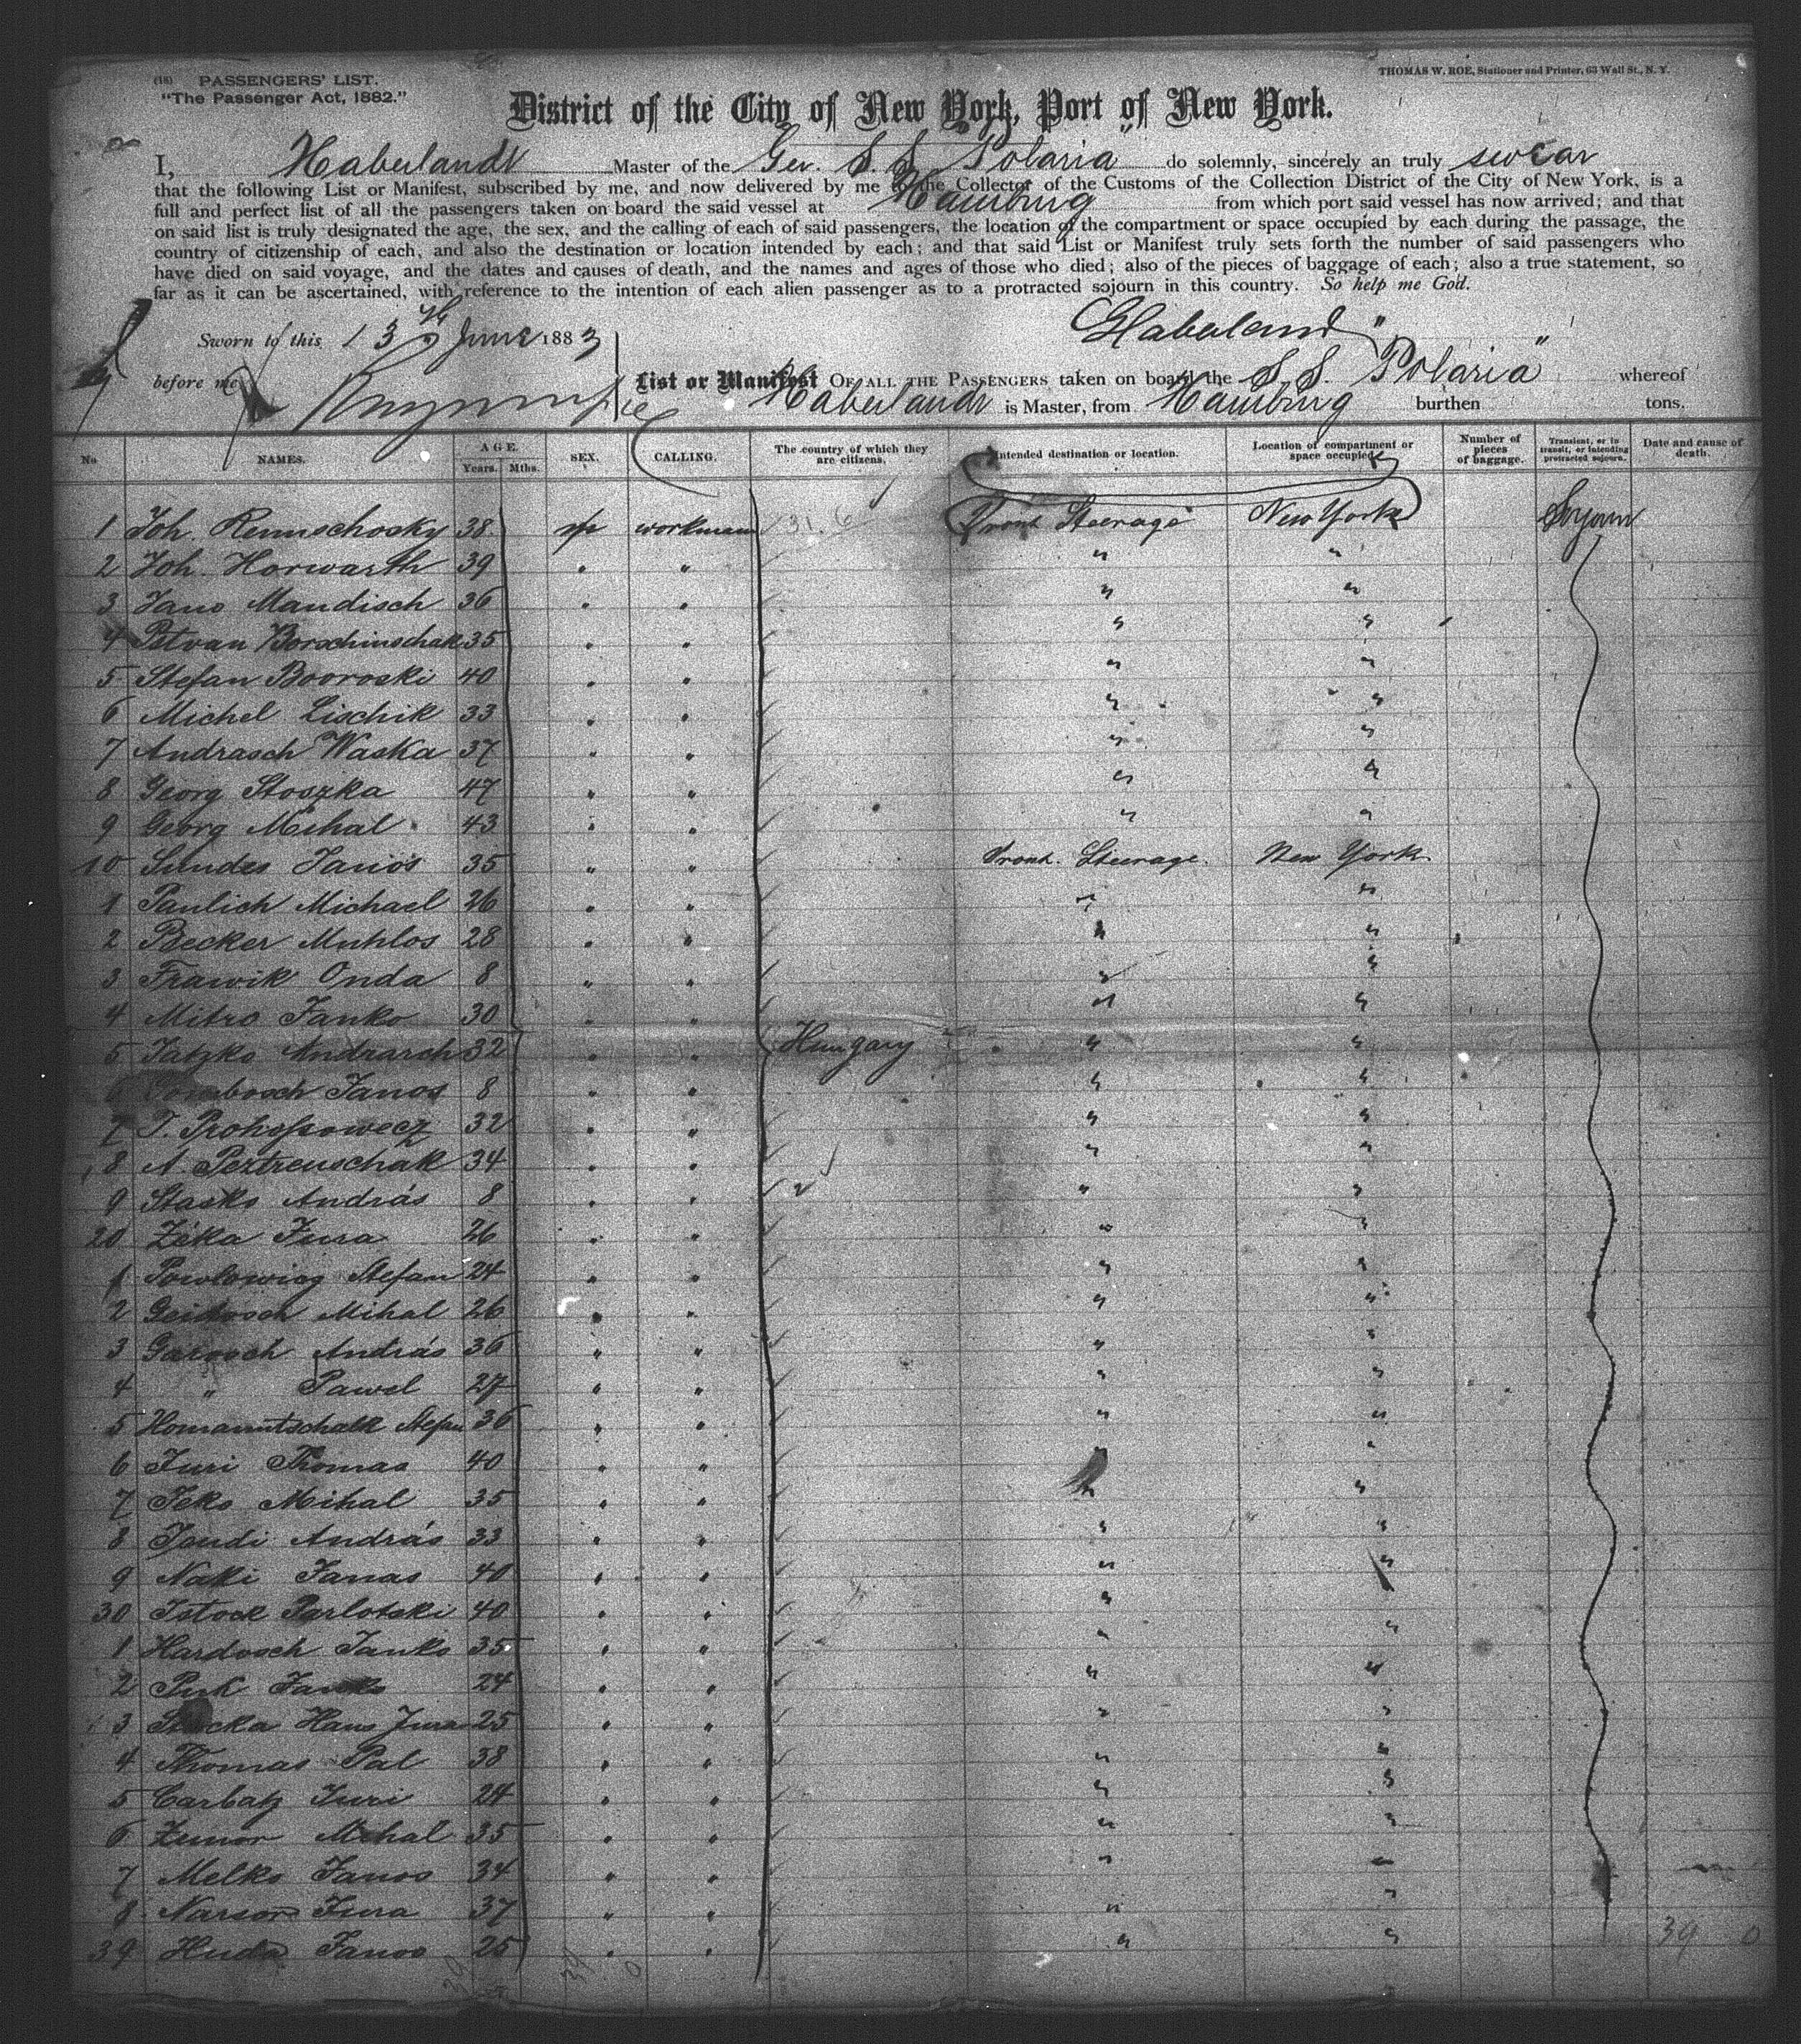 (18) PASSENGERS' LIST.
"The Passenger Act, 1882."
THOMAS W. ROE, Stationer and Printer, 63 Wall St., N. Y.
District of the City of New York, Port of New York.
I, Haberlandt Master of the Ger. S. S. "Polaria" do solemnly, sincerely an truly swear
that the following List or Manifest, subscribed by me, and now delivered by me to the Collector of the Customs of the Collection District of the City of New York, is a
full and perfect list of all the passengers taken on board the said vessel at Hamburg from which port said vessel has now arrived; and that
on said list is truly designated the age, the sex, and the calling of each of said passengers, the location of the compartment or space occupied by each during the passage, the
country of citizenship of each, and also the destination or location intended by each; and that said List or Manifest truly sets forth the number of said passengers who
have died on said voyage, and the dates and causes of death, and the names and ages of those who died; also of the pieces of baggage of each; also a true statement, so
far as it can be ascertained, with reference to the intention of each alien passenger as to a protracted sojourn in this country. So help me God.
Sworn to this 13th June 1883
Haberland
before me
List or Manifest OF ALL THE PASSENGERS taken on board the S. S. "Polaria" whereof
Haberlandt is Master, from Hamburg burthen tons.
No NAMES. AGE. Years. Mths. SEX. CALLING. The country of which they are citizens. Intended destination or location. Location of compartment or space occupied. Number of pieces of baggage. Transient, or in transit, or intending protracted sojourn. Date and cause of death.
1 Joh. Remschosky 38 workman 31.6 Front Steerage New York
2 Joh. Horwarth 39 " " " "
3 Jano Mandisch 36 " " " "
4 Petvan Borschinschak 35 " " " "
5 Stefan Booroski 40 " " " "
6 Michel Lischik 33 " " " "
7 Andrasch Waska 37 " " " "
8 Georg Stoszka 47 " " " "
9 Georg Mihal 43 " " " "
10 Sundes Janos 35 " " Front. Steerage. New York
1 Paulich Michael 26 " " " "
2 Becker Muhlos 28 " " " "
3 Frawik Onda 8 " " " "
4 Mitro Janko 30 " " " "
5 Jatzko Andrarch 32 " " Hungary " "
6 Janos 8 " " " "
7 J. Prokopowecz 32 " " " "
8 A. Pertrenschak 34 " " " "
9 Stasko András 8 " " " "
20 Zéka Jura 26 " " " "
1 Powlowicz Stefan 24 " " " "
2 Mihal 26 " " " "
3 Garosch András 36 " " " "
4 " Pawel 27 " " " "
5 Homanntschak Stefan 36 " " " "
6 Juri Thomas 40 " " " "
7 Jeko Mihal 35 " " " "
8 Jendi András 33 " " " "
9 Naki Janas 40 " " " "
30 Istock Parlotski 40 " " " "
1 Hardosch Janko 35 " " " "
2 Puk Janko 24 " " " "
3 Hans Jura 25 " " " "
4 Thomas Pal 38 " " " "
5 Carbatz Juri 24 " " " "
6 Zemor Mihal 35 " " " "
7 Melko Janos 34 " " " "
8 Narsor Jura 37 " " " "
39 Huda Janos 25 " " " "
39 0
39 39 0